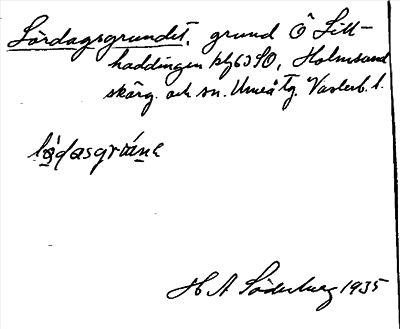 Lördagsgrundet, grund Ö Lill-
haddingen blj 63 SO, Holmsund
skärg. och sn. Umeå tg. Västerb. l.
H A Söderberg 1935